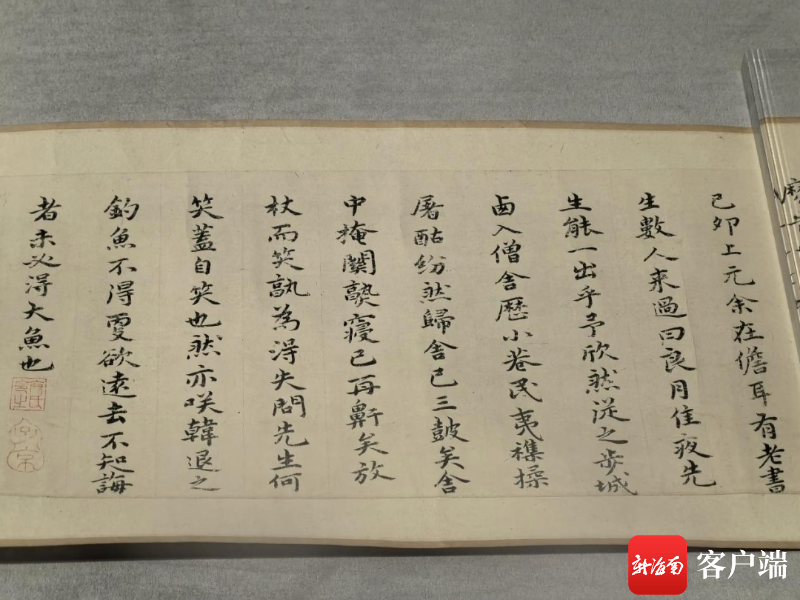 己卯上元余在儋耳有老書
生數人来過曰良月佳夜先
生能一出乎予欣然從之步城
卤入僧舍歷小巷民夷襍揉
屠酤紛然歸舍已三鼓矣舍
中掩關熟寢已再鼾矣放
杖而笑孰為得失問先生何
笑蓋自笑也然亦咲韓退之
釣魚不得更欲遠去不知海
者未必得大魚也
新海南 客户端